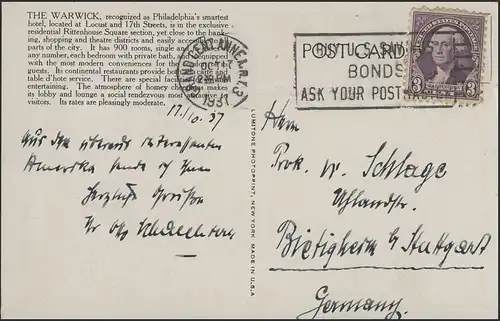 THE WARWICK, recognized as Philadelphia's smartest
hotel, located at Locust and 17th Streets, is in the exclusive
residential Rittenhouse Square section, yet close to the bank-
ing, shopping and theatre districts and easily accessible to
parts of the city. It has 900 rooms, single and
any number, each bedroom with private bath,
with the most modern conveniences for the
guests. Its continental restaurants provide both a la carte and
table d'hote service. There are special facilities
The atmosphere of homey
its lobby and lounge a social rendezvous most attractive to
visitors. Its rates are pleasingly moderate.
GRAND CENT. ANNEX, N.Y.
OCT 17
PM
1937
POST CARD
BUY U.S. SAVINGS
BONDS
ASK YOUR POSTMASTER
3 3
17.10.37
LUMITONE PHOTOPRINT, NEW YORK. MADE IN U.S.A.
Aus dem überaus interessanten
Amerika sende ich Ihnen
herzliche Grüße
Ihr Otto
Herrn
Prok. W. Schlage
Uhlandstr.
Bietigheim b/ Stuttgart
Germany.